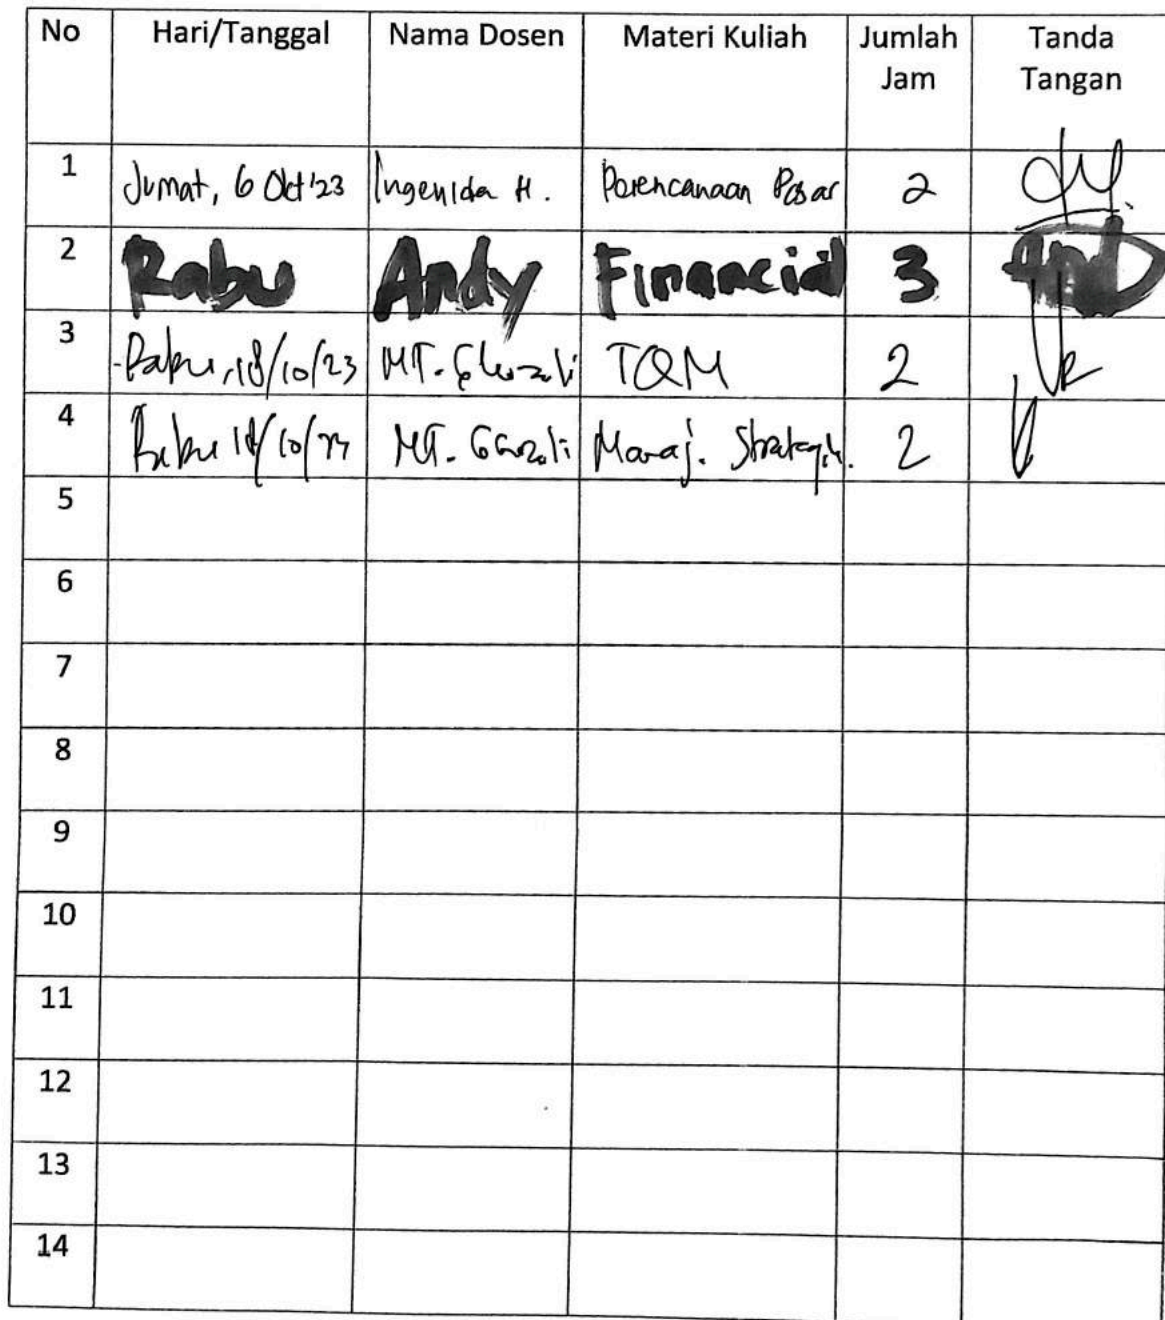 No Hari/Tanggal Nama Dosen Materi Kuliah Jumlah Jam Tanda Tangan
1 Jumat, 6 Okt'23 Ingenida H. Perencanaan Pasar 2
2 Rabu Andy Financial 3 And
3 Rabu, 18/10/23 MT. Ghozali TQM 2
4 Rabu 18/10/23 MT. Ghozali Manaj. Strategik. 2
5
6
7
8
9
10
11
12
13
14